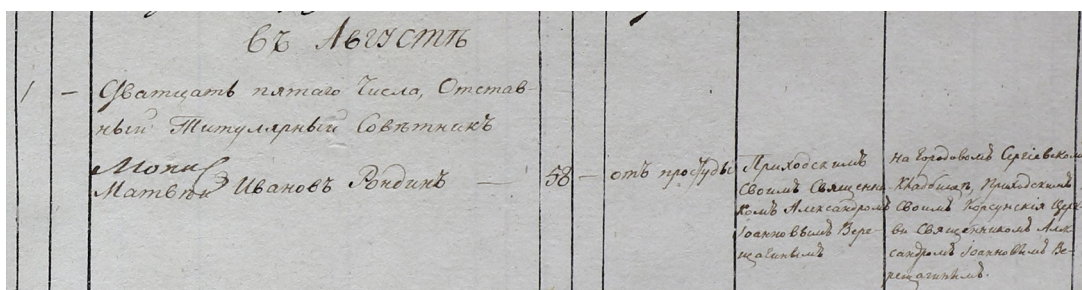 въ Августѣ
1 — Дватцать пятаго Числа, Отстав-
ный Титулярный Совѣтникъ
Матвѣй Ивановъ Рондинъ — 58 — отъ простуды
Приходскимъ
своимъ Священни-
комъ Александромъ
Іоанновымъ Вере-
щагинымъ
на Городовомъ Сергіевскомъ
Кладбищѣ, Приходскимъ
Своимъ Корсунскія Церк-
ви Священникомъ Алек-
сандромъ Іоанновымъ Ве-
рещагинымъ.